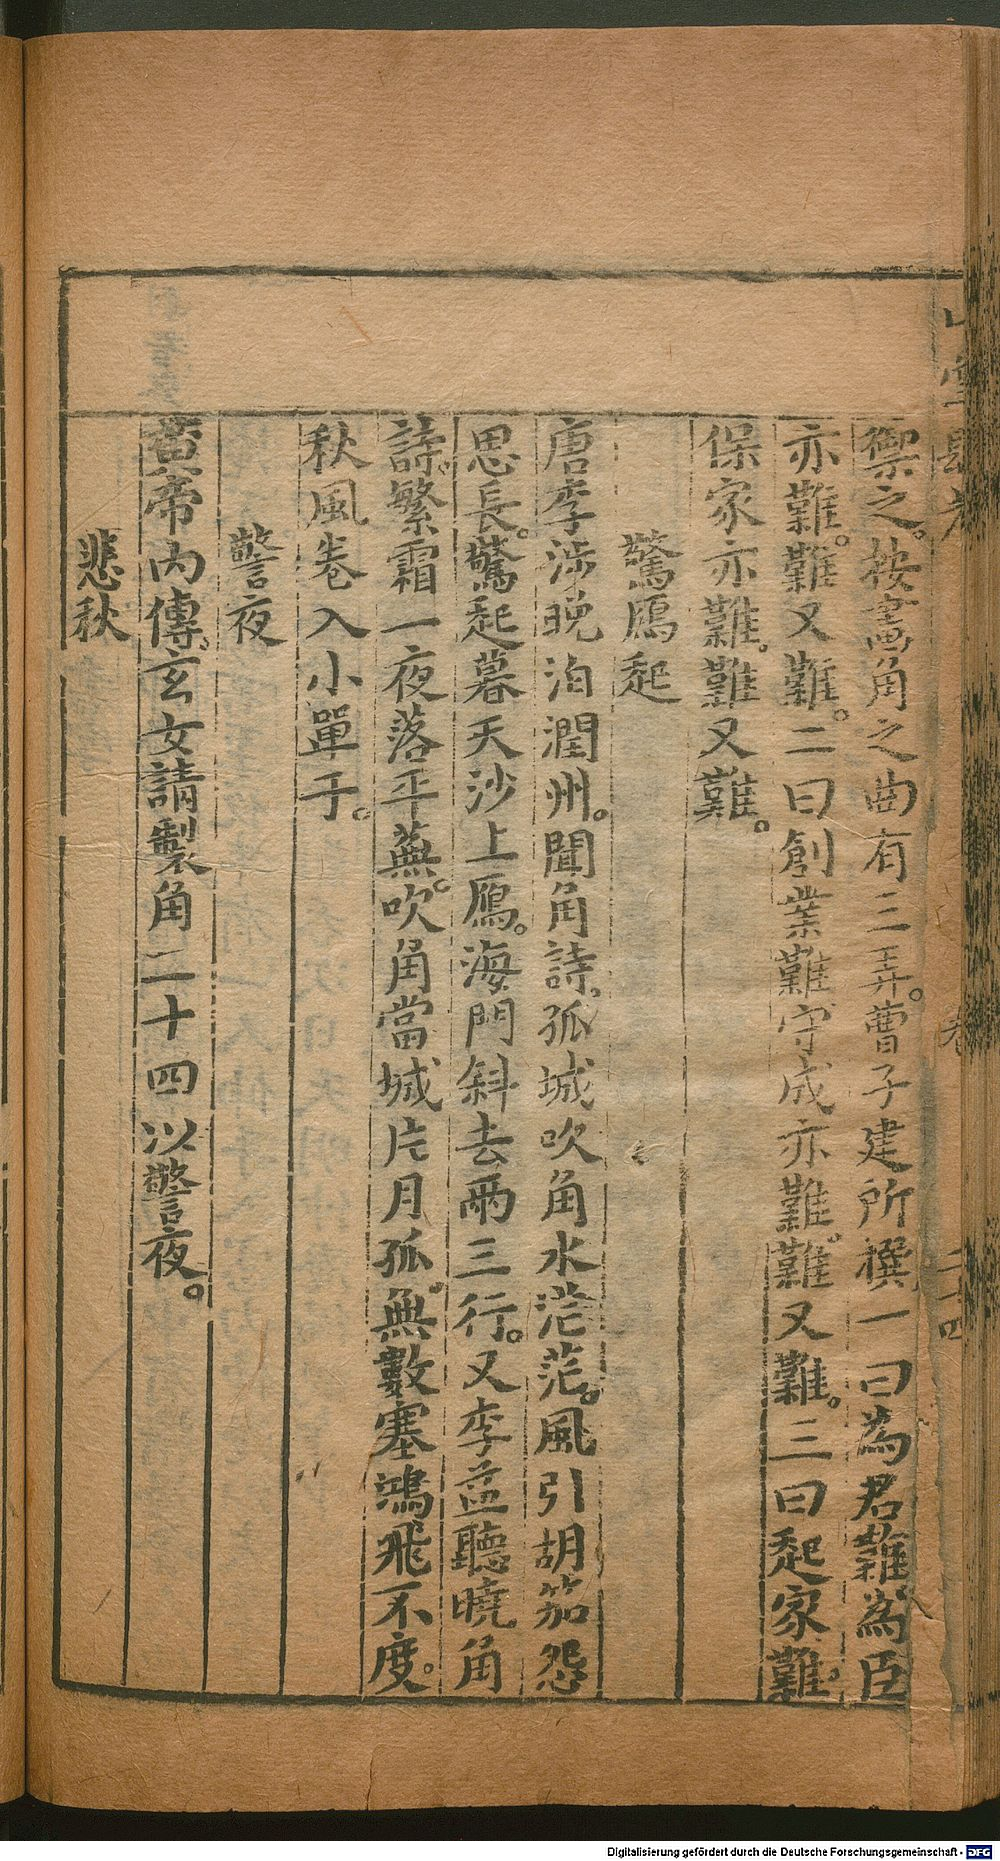 禦之。按畫角之曲有三弄。曹子建所撰一曰為君難為臣
亦難。難又難。二曰創業難守成亦難。難又難。三曰起家難。
保家亦難。難又難。
驚鴈起
唐李涉晚泊潤州。聞角詩。孤城吹角水茫茫。風引胡笳怨
思長。驚起暮天沙上鴈。海門斜去兩三行。又李益聽曉角
詩。繁霜一夜落平蕪。吹角當城片月孤。無數塞鴻飛不度。
秋風卷入小單于。
警夜
黃帝內傳。玄女請製角二十四以警夜。
悲秋
Digitalisierung gefördert durch die Deutsche Forschungsgemeinschaft - DFG